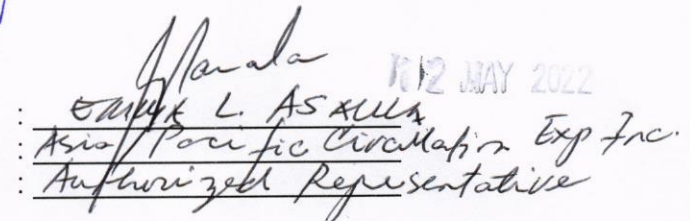 12 MAY 2022
: L.
: Asia Pacific Circulation Exp Inc.
: Authorized Representative